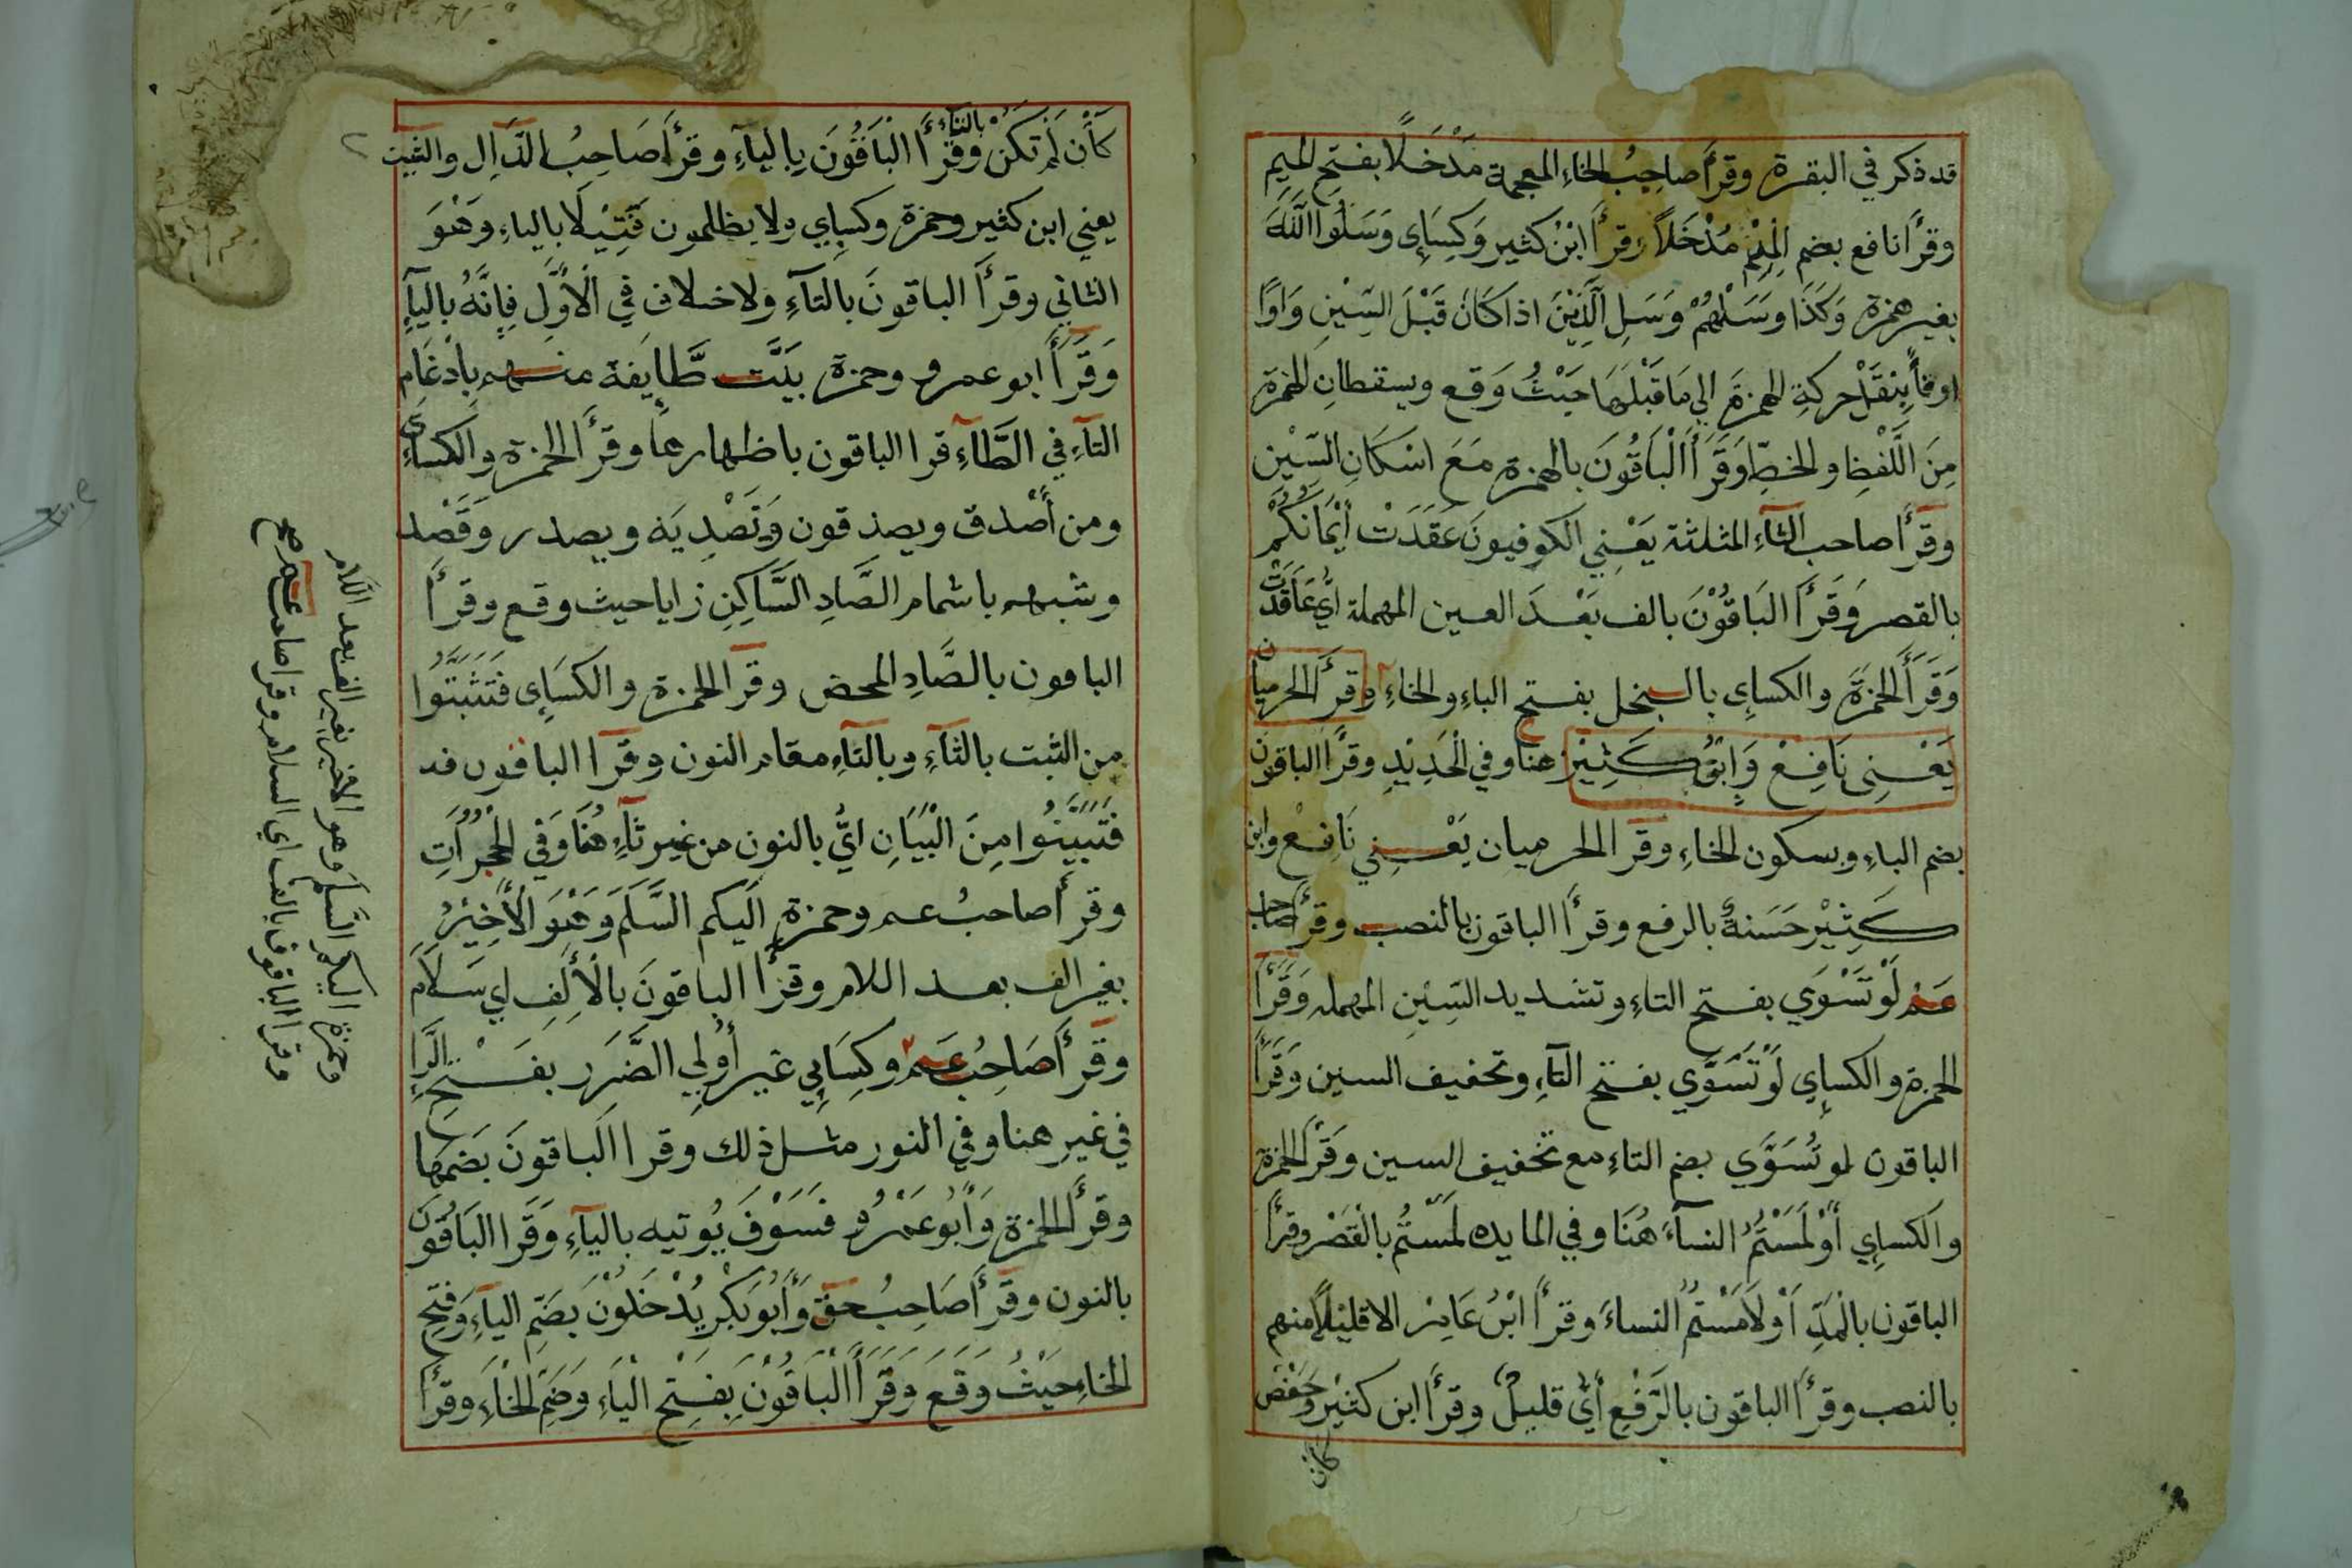 قد ذكر في البقرة وقرأ صاحب الخاء المعجمة مَدْخَلًا بفتح الميم
وقرأ نافع بضم الْمِيْم مُدْخَلاً وقرأ ابْنُ كثير وَكِسَاءِي وَسَلُوا اللَّهَ
بغير همزة وَكَذَا وَسَلْهُمْ وَسَلِ الَّذِيْنَ اذا كَانَ قَبْلَ السِّيْنِ وَاوًا
اوفأً بِنقَلْ حركةِ الهمزةِ الي مَا قَبْلَهَا حَيْثُ وَقع ويسقطانِ الهمزة
مِنَ اللَّفْظِ والخطِّ وَقَرَأَ الْبَاقُونَ بالهمزة مَعَ اسْكَانِ السِّيْنِ
وقرأ صاحب الثآءِ المثلثة يَعْنِي الكوفيونَ عَقَدَتْ أَيْمَانُكُمْ
بالقصر وَقَرَأَ البَاقُوْنَ بالف بَعْدَ العين المهملة أيْ عَاقَدَتْ
وَقَرَأَ الحمزَة والكساءِي بالبخل بفتح الباءِ والخاءِ وقرأ الحرميان
يَعْنِي نَافِعْ وَابْنُ كَثِيْرْ هنا وفي الْحَدِيْدِ وقرأ الباقون
بضم الباءِ وبسكون الخاءِ وقرا الحرميان يَعْنِي نَافِعْ وابن
كَثِيْر حَسَنةٌ بالرفع وقرأ الباقون بالنصب وقرأ صاحب
عَمْ لَوْ تَسَّوَّي بفتح التاءِ وتشديد السِّيْنِ المهمله وَقَرَأَ
الحمزة والكساءِي لَوْ تَسَوَّي بفتح التآءِ وتخفيف السين وَقَرَأَ
الباقون لو تُسَوَّي بضم التاءِ مع تخفيف السين وَقَرأَ الحمزة
والكساءِي أَوْ لَمَسْتُمُ النسآءَ هُنَا وفي المايده لَمَسْتُم بالْقَصْرِ وقرأ
الباقون بالْمَدِّ اَوْ لاَمَسْتُمُ النساءَ وقرأَ ابْنُ عَامِرْ الا قليْلًا منهم
بالنصب وقرأ الباقون بالرَّفْعِ أيْ قليلٌ وقرأ ابن كثيْر وحَفْصْ
كأن
كَأَنْ لَمْ تَكُنْ بالتآءِ وقرأ الْبَاقُونَ بِاليآءِ وقرأ صَاحِبُ الدَّالِ والشِّيْن
يعني ابن كثير وحمزة وكساءِي ولا يظلمون فَتِيْلًا بالياءِ وَهْوَ
الثاني وقرأَ الباقونَ بالتآءِ ولا خلاف فِي الْأَوَّلِ فَإِنَّهُ باليآءِ
وَقَرَأَ ابو عمرو وحمزة بَيَّتْ طَّايِفة منهم بِادْغَامِ
التآءِ في الطَّآءِ قرا الباقون باظهارها وقرأ الحمزة والكساءِي
ومن أَصْدق ويصدقون وَتَصْدِيَة ويصدر وَقَصْد
وشبهه باشمام الصَّادِ السَّاكِنِ زايا حيث وقع وقرأَ
الباقون بالصَّادِ المحض وقرا الحمزة والكسَاءِي فَتَثَبَّتُوا
من الثبت بالثآءِ وبالتآءِ مقام النون وقرا الباقون
فَتَبَيَّنُوا مِنَ الْبَيَانِ ايْ بالنون من غير ثآءِ هُنَا وَفِي الْحُجُرَاتِ
وقرأ صاحبُ عم وحمزة اليكم السَّلَمَ وَهْوَ الْأَخِيْرُ
بغير الف بعد اللام وقرأ الباقونَ بالْأَلِفِ اي سَلاَم
وقرأ صَاحِبُ عَمْ وكِسَاءِي غيرَ أُوْلِي الضَّرَر بفَتْحِ الرَّاءِ
في غير هنا وفي النور مثل ذلك وقرا الباقونَ بَضمها
وقرأ الحمزة وَأبُو عَمْرُو فَسَوْفَ يُوتيه باليآءِ وَقَرا البَاقُونَ
بالنون وقرأ صَاحِبُ حق وَأبُو بَكْرِ يُدْخَلُوْنَ بَضَمِّ اليآءِ وَفتحِ
الخاءِ حَيْثُ وَقَع وَقَرَأَ الْبَاقُوْنَ بِفَتْحِ الْيَاءِ وَضَمِّ الْخَاءِ وقرأَ
وحمزة اليكم السَّلَم وهو الاخير بغير الف بعد اللام
وقرا الباقون بالف اي السلام وقرا صاحب عم